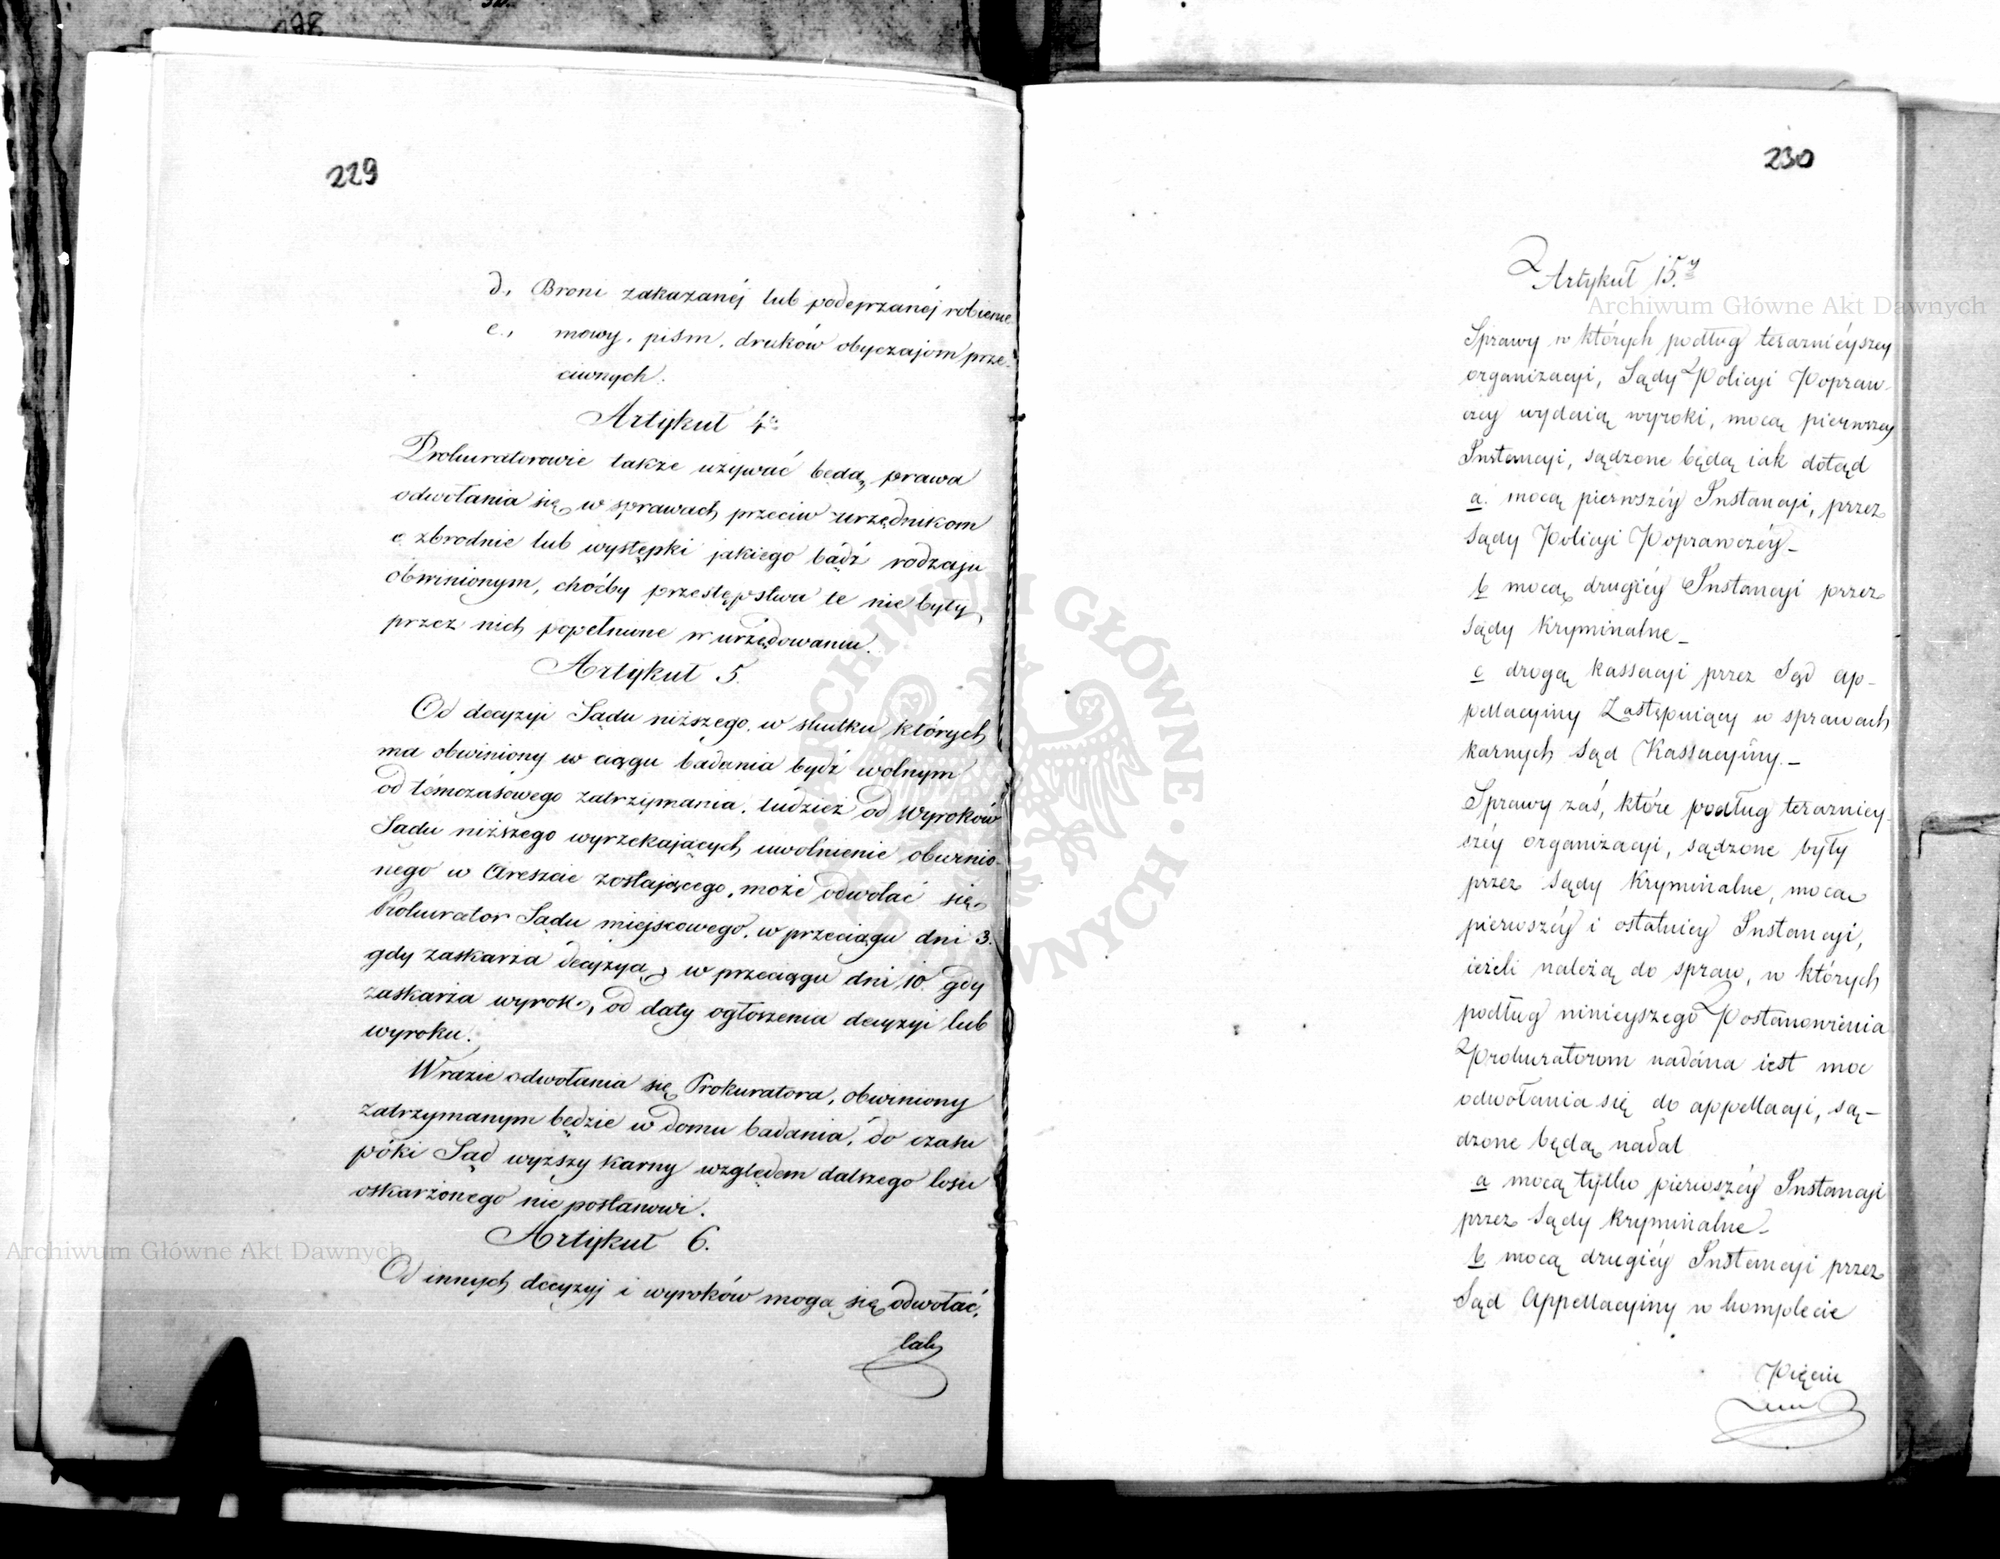 229
d. Broni zakazanéj lub podejrzanéj robienie
e., mowy, pism, druków obyczajom prze-
ciwnych.
Artykuł 4.
Prokuratorowie także używać będą, prawa
odwołania się, w sprawach przeciw urzędnikom
o zbrodnie lub występki jakiego bądź rodzaju
obwinionym, choćby przestępstwa te nie były
przez nich popełnione w urzędowaniu.
Artykuł 5.
Od decyzyi Sądu niższego, w skutku których
ma obwiniony w ciągu badania bydź wolnym
od tómczasowego zatrzymania, tudzież od wyroków
Sądu niższego wyrzekających uwolnienie obwinio-
nego w Areszcie zostającego, może odwołać się
Prokurator Sądu miejscowego, w przeciągu dni 3.
gdy zaskarża decyzyą, w przeciągu dni 10 gdy
zaskarża wyrok, od daty ogłoszenia decyzyi lub
wyroku.
W razie odwołania się Prokuratora, obwiniony
zatrzymanym będzie w domu badania, do czasu
póki Sąd wyższy karny względem dalszego losu
oskarżonego nie postanowi.
Artykuł 6.
Od innych decyzyj i wyroków mogą się odwołać,
230
Artykuł 15.y
Sprawy w których podług teraznieyszey
organizacyi, Sądy Policyi Popraw-
czey wydaią wyroki, mocą pierwszey
Instancyi, sądzone będą iak dotąd
a. mocą pierwszéy Instancyi, przez
Sądy Policyi Poprawczéy_
b mocą drugiéy Instancyi przez
Sądy Kryminalne_
c drogą kassacyi przez Sąd ap-
pellacyiny Zastępuiący w sprawach
karnych Sąd Kassacyiny._
Sprawy zaś, które podług teraznieỳ-
széy organizacyi, sądzone były
przez Sądy Kryminalne, mocą
pierwszéy i ostatniey Instancyi,
ieżeli należą do spraw, w których
podług ninieyszego Postanowienia
Prokuratorom nadana iest moc
odwołania się do appellacyi, są-
dzone będą nadal
a mocą tylko pierwszéy Instancyi
przez Sądy Kryminalne_
b mocą drugiéy Instancyi przez
Sąd Appellacyiny w komplecie
Pięciu
Archiwum Główne Akt Dawnych
Archiwum Główne Akt Dawnych
ARCHIWUM GŁÓWNE AKT DAWNYCH